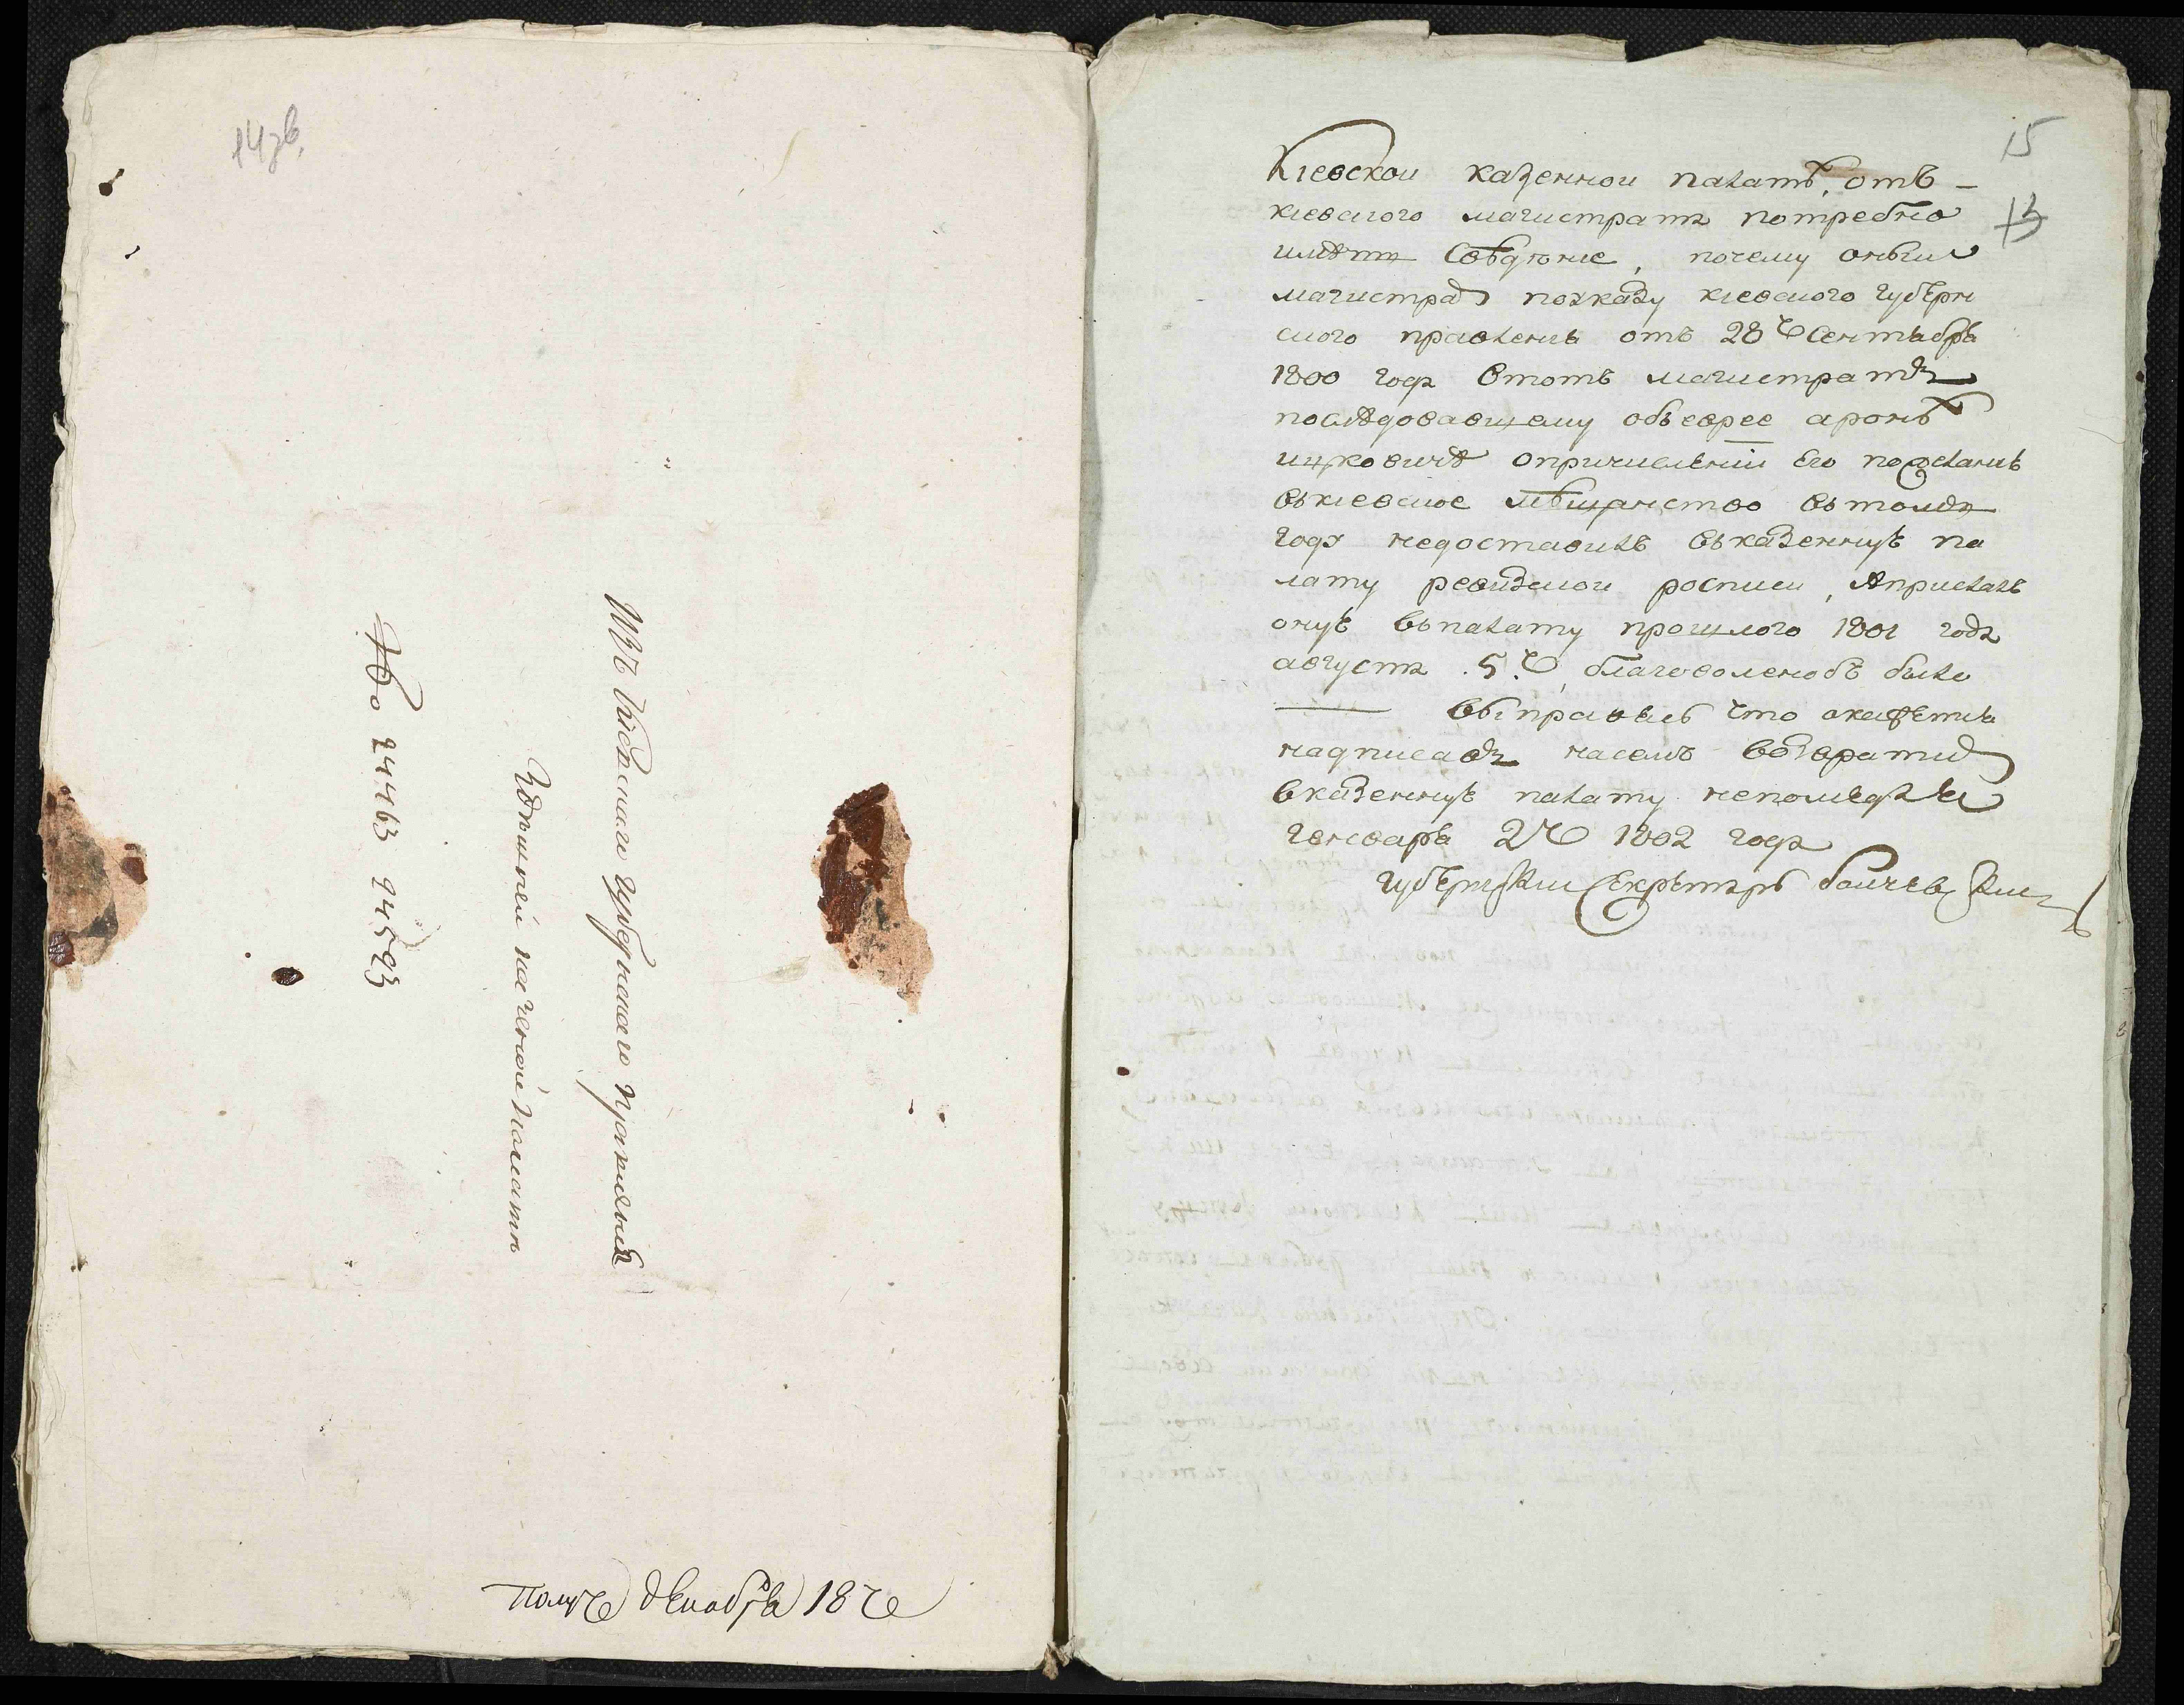 14зв.
Изъ Кіевскаго губернскаго правленія
Здѣшней казенной палатѣ
№ 24463 24593
Получ декабря 18 ч
15
13
Киевскои казеннои палатѣ, отъ –
киевского магистрата потребно
имѣть Сведение, почему оныи
магистрат поуказу киевского губерн
ского правления отъ 28 ч Сентября
1800 года Втотъ магистратъ
последовавшему объеврее аронѣ
ицковиче опричислении Его пожеланию
вкиевское мѣщанство втомъ
году недоставилъ вьказенную па
лату ревизскои росписи, Априслалъ
оную вьпалату прошлого 1801 года
августа 5. ч, благоволенобъ было
выправясь что окажетца
надписавъ насемъ возвратить
вказенную палату непомедля
генваря 2 ч 1802 года
губернски Секретарь